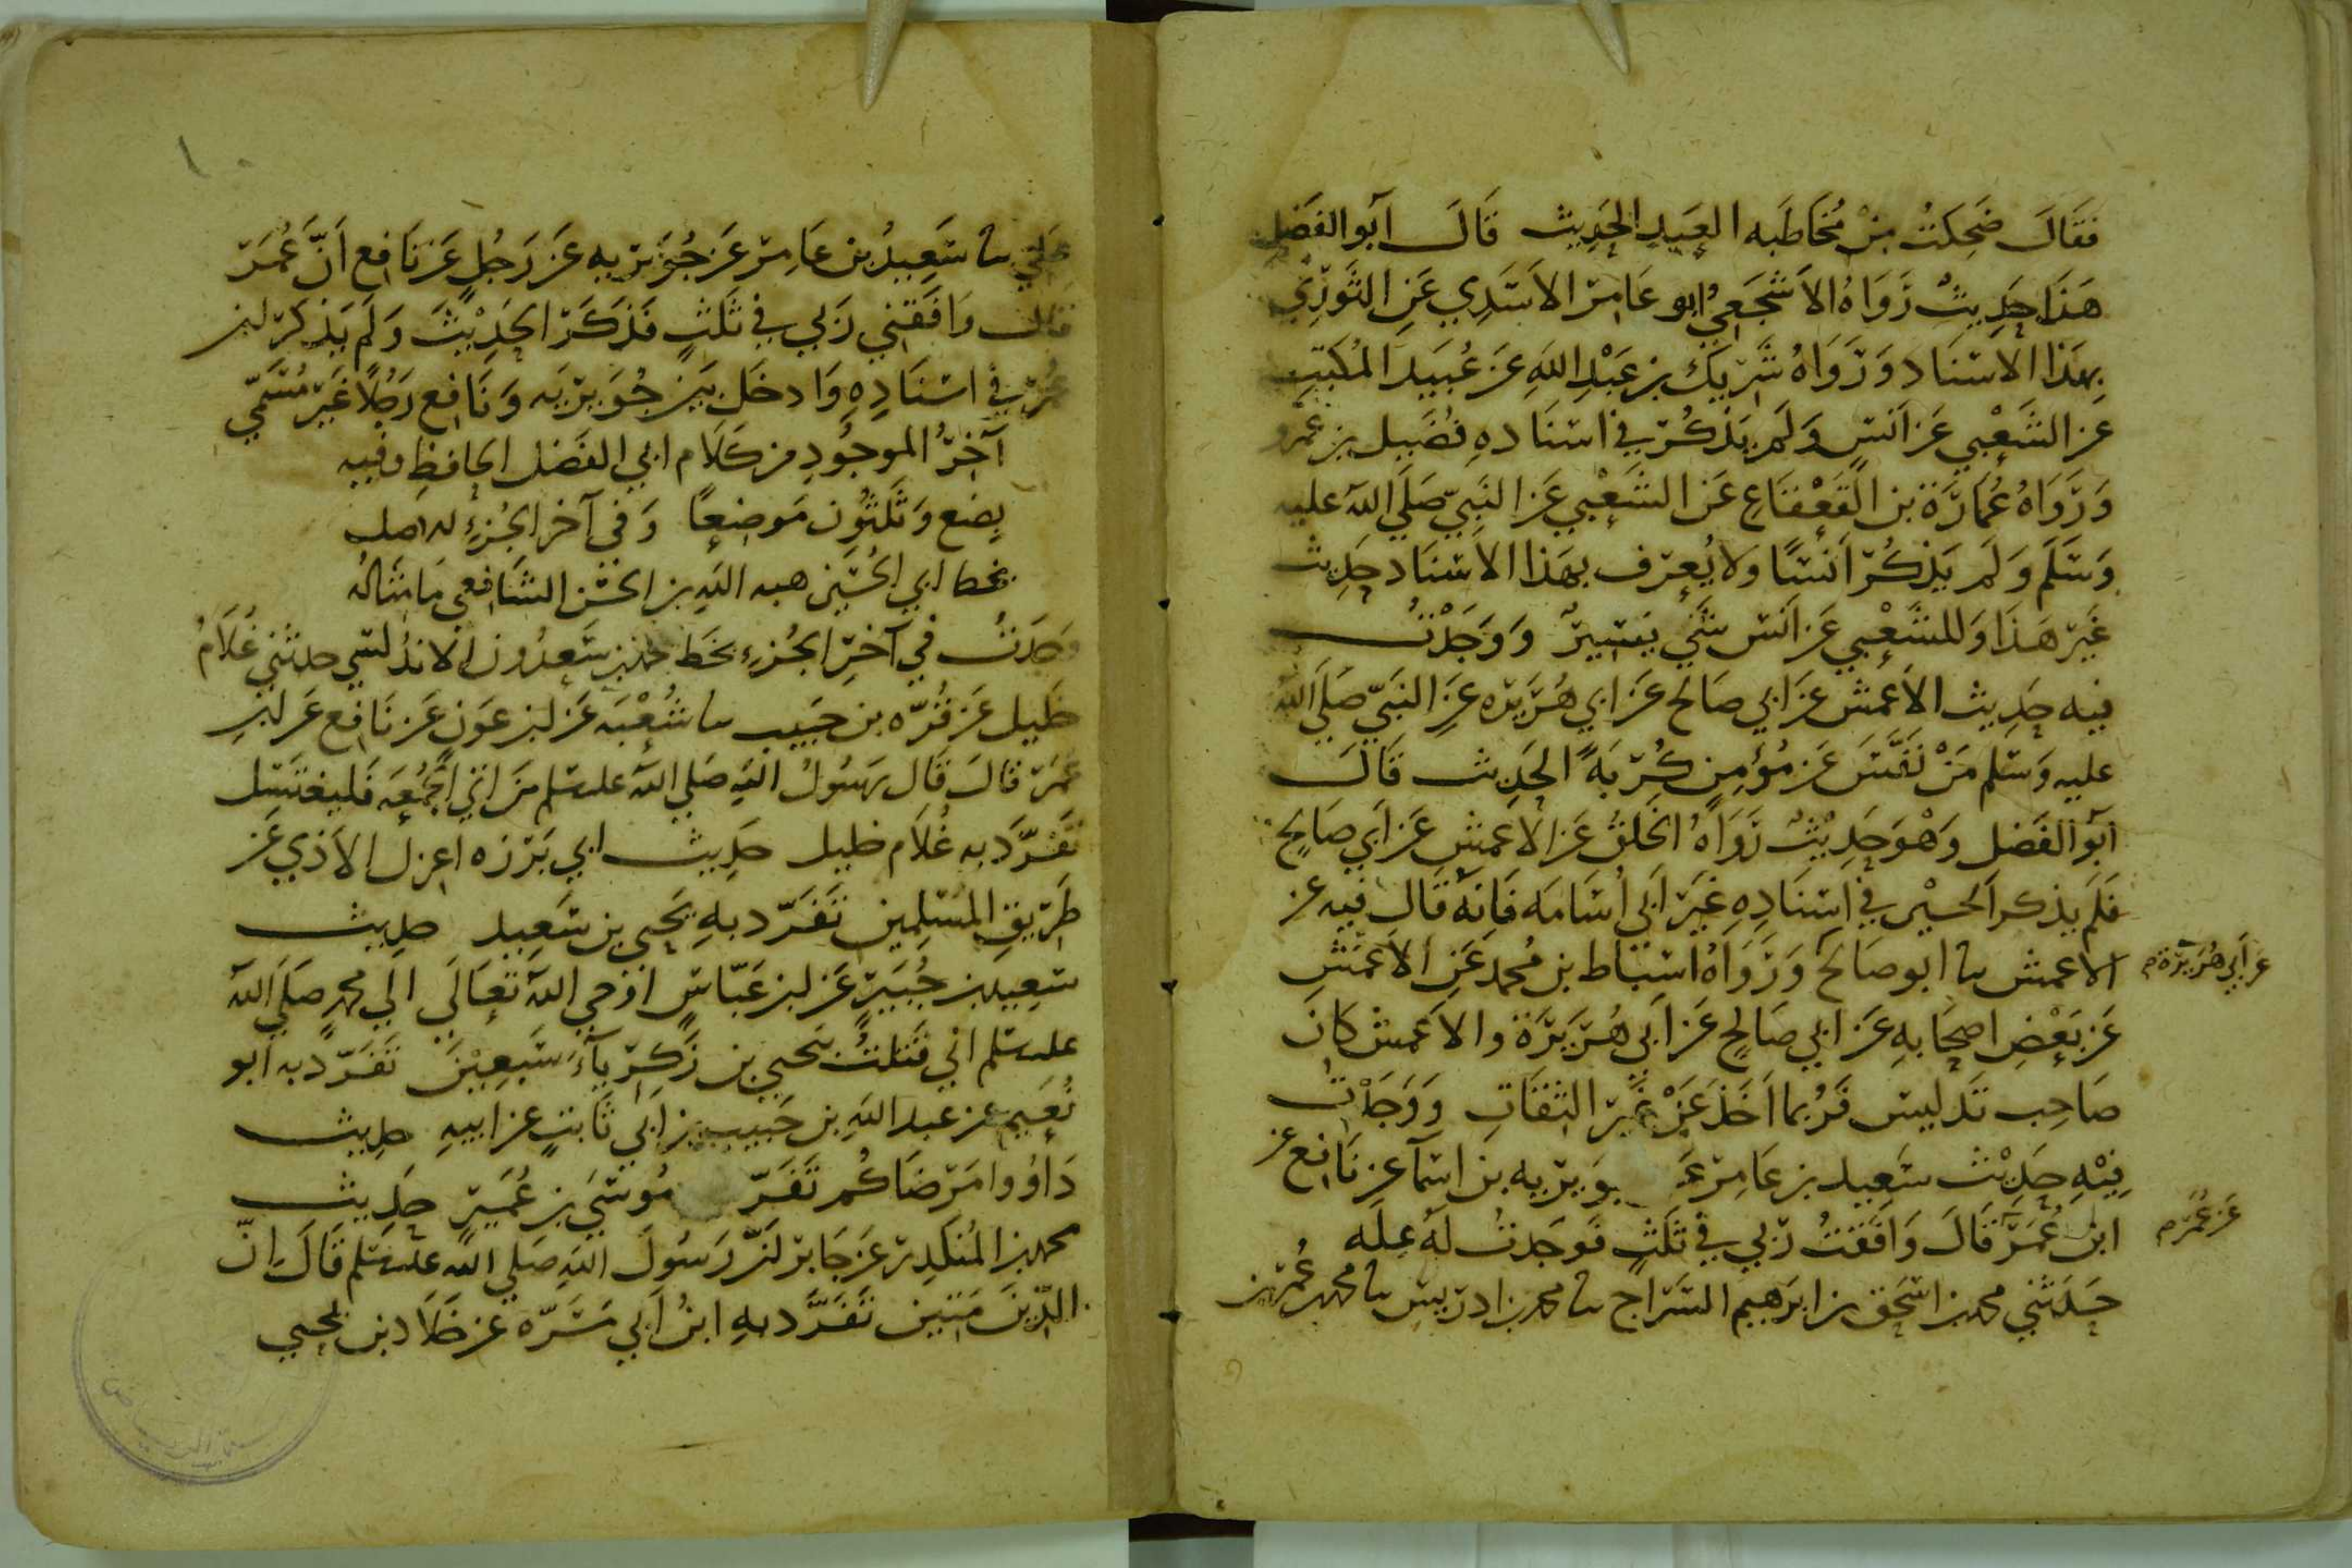 فقال ضحكت من مخاطبه العبد الحديث قال أبو الفضل
هذا حديث رواه الأشجعي ابو عامر الأسدي عن الثوري
بهذا الاسناد ورواه شريك بن عبد الله عن عبيد المكتب
عن الشعبي عن أنس ولم يذكر في اسناده فضيل بن عمرو
ورواه عمارة بن القعقاع عن الشعبي عن النبي صلى الله عليه
وسلم ولم يذكر أنسا ولا يعرف بهذا الاسناد حديث
غير هذا وللشعبي عن أنس شيء يسير ووجدت
فيه حديث الأعمش عن أبي صالح عن أبي هريره عن النبي صلى الله
عليه وسلم من نفس عن مؤمن كربة الحديث قال
أبو الفضل وهو حديث رواه الخلق عن الاعمش عن أبي صالح
فلم يذكر الخبر في اسناده غير أبي أسامه فانه قال فيه عن
الأعمش سا ابو صالح ورواه اسباط بن محمد عن الأعمش
عن أبي هريرة م
عن بعض اصحابه عن أبي صالح عن أبي هريرة والاعمش كان
صاحب تدليس فربما أخذ عن غير الثقات ووجدت
فيه حديث سعيد بن عامر عن جويريه بن اسما عن نافع عن
ابن عمر قال وافقت ربي في ثلث فوجدت له علة
عن عمر م
حدثني محمد بن اسحق بن ابرهيم السراج سا محمد بن ادريس سا محمد بن عمر بن
علي سا سعيد بن عامر عن جويريه عن رجل عن نافع أن عمر
قال وافقني ربي في ثلث فذكر الحديث ولم يذكر ابن
عمر في اسناده وادخل بين جويريه ونافع رجلا غير مسمى
آخر الموجود من كلام ابي الفضل الحافظ وفيه
بضع وثلثون موضعا وفي آخر الجزء له اصل
بخط ابي الحسين هبه الله بن الحسن الشافعي ما مثاله
وجدت في آخر الجزء بخط محمد بن سعدون الاندلسي حدثني غلام
خليل عن قره بن حبيب سا شعبه عن ابن عون عن نافع عن ابن
عمر قال قال رسول الله صلى الله عليه سلم من اتى الجمعه فليغتسل
تفرد به غلام خليل حديث ابي برزه اعزل الأذي عن
طريق المسلمين تفرد به يحيى بن سعيد حديث
سعيد بن جبير عن ابن عباس اوحى الله تعالى الى محمد صلى الله
عليه سلم اني قتلت بيحيي بن زكرياء سبعين تفرد به أبو
نعيم عن عبد الله بن حبيب بن أبي ثابت عن ابيه حديث
داووا مرضاكم تفرد موسى بن عمير حديث
محمد بن المنكدر عن جابر أن رسول الله صلى الله عليه سلم قال إن
الدين متين تفرد به ابن أبي مسره عن خلاد بن يحيى